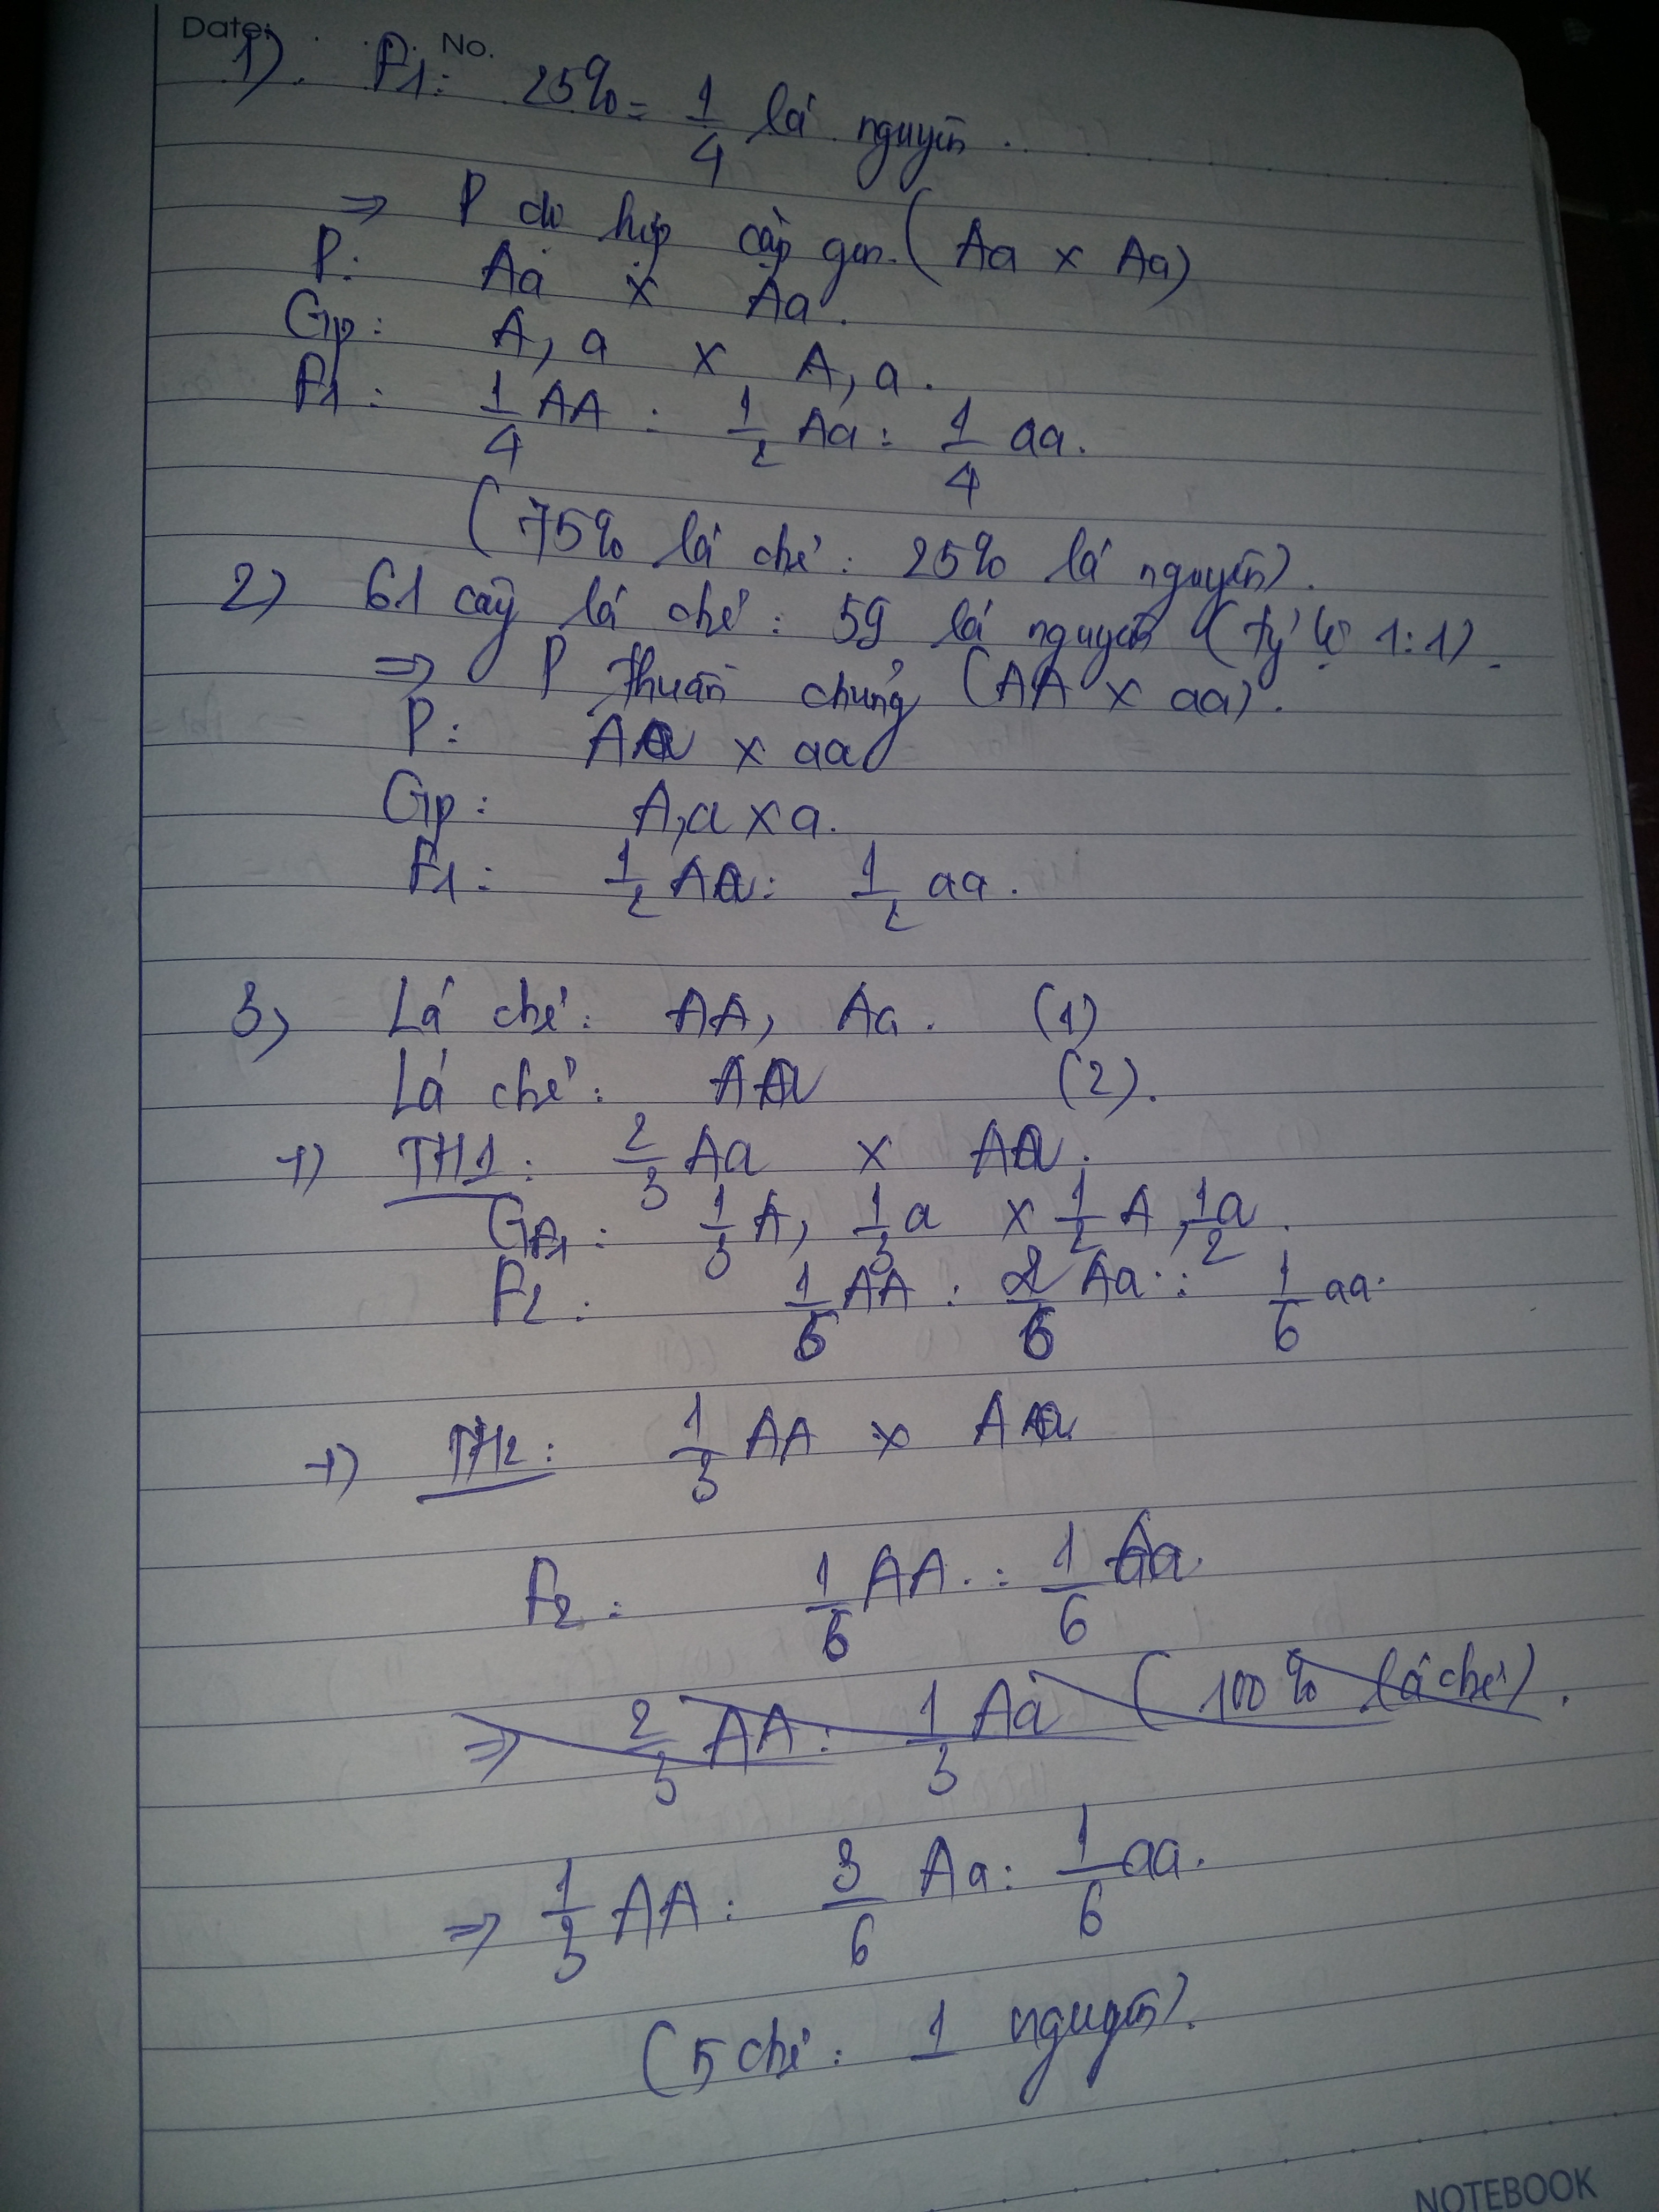 Date: No.
1). F1: 25% = 1/4 lá nguyên.
⇒ P dị hợp cặp gen. (Aa x Aa)
P: Aa x Aa.
Gp: A, a x A, a.
F1: 1/4 AA : 1/2 Aa : 1/4 aa.
(75% lá chẻ : 25% lá nguyên).
2) 61 cây lá chẻ : 59 lá nguyên (tỷ lệ 1:1).
⇒ P thuần chủng (AA x aa).
P: Aa x aa
Gp: A, a x a.
F1: 1/2 Aa : 1/2 aa.
3) Lá chẻ: AA, Aa. (1)
Lá chẻ: Aa (2).
+) TH1: 2/3 Aa x Aa.
GF1: 1/3 A, 1/3 a x 1/2 A, 1/2 a.
F2: 1/6 AA : 2/6 Aa : 1/6 aa.
+) TH2: 1/3 AA x Aa
F2: 1/6 AA : 1/6 Aa.
⇒ 2/3 AA : 1/3 Aa (100% lá chẻ).
⇒ 1/3 AA : 3/6 Aa : 1/6 aa.
(5 chẻ : 1 nguyên).
NOTEBOOK